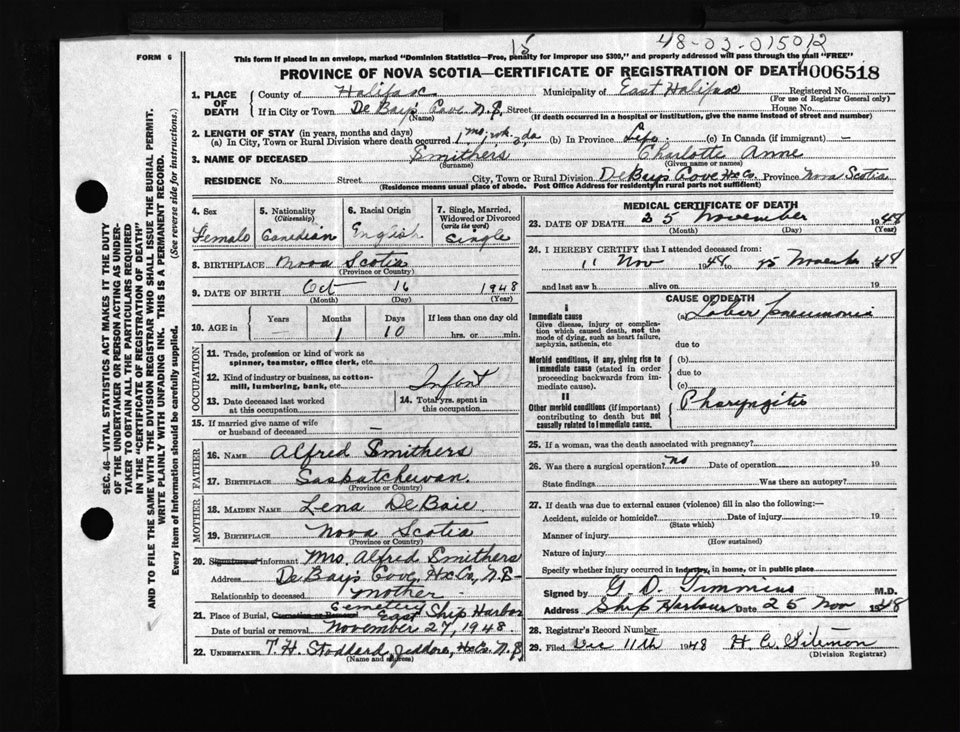 15
48-03-015012
FORM 6
This form if placed in an envelope, marked "Dominion Statistics—Free, penalty for improper use $300," and properly addressed will pass through the mail "FREE"
PROVINCE OF NOVA SCOTIA—CERTIFICATE OF REGISTRATION OF DEATH 006518
1. PLACE OF DEATH County of Halifax Municipality of East Halifax Registered No.
(For use of Registrar General only)
If in City or Town De Bay's Cove N.S. Street House No.
(Name) (If death occurred in a hospital or institution, give the name instead of street and number)
2. LENGTH OF STAY (in years, months and days)
(a) In City, Town or Rural Division where death occurred 1 mo. wk. da. (b) In Province Life (c) In Canada (if immigrant) —
3. NAME OF DECEASED Smithers Charlotte Anne
(Surname) (Given name or names)
RESIDENCE No. Street City, Town or Rural Division De Bays Cove Hx Co. Province Nova Scotia
(Residence means usual place of abode. Post Office Address for residents in rural parts not sufficient)
SEC. 46—VITAL STATISTICS ACT MAKES IT THE DUTY
OF THE UNDERTAKER OR PERSON ACTING AS UNDER-
TAKER TO OBTAIN ALL THE PARTICULARS REQUIRED
IN THE "CERTIFICATE OF REGISTRATION OF DEATH"
AND TO FILE THE SAME WITH THE DIVISION REGISTRAR WHO SHALL ISSUE THE BURIAL PERMIT.
WRITE PLAINLY WITH UNFADING INK. THIS IS A PERMANENT RECORD.
Every item of information should be carefully supplied. (See reverse side for instructions.)
4. Sex 5. Nationality (Citizenship) 6. Racial Origin 7. Single, Married, Widowed or Divorced (write the word)
Female Canadian English Single
8. BIRTHPLACE Nova Scotia
(Province or Country)
9. DATE OF BIRTH Oct 16 1948
(Month) (Day) (Year)
10. AGE in Years Months Days If less than one day old
1 10 hrs. or min.
OCCUPATION
11. Trade, profession or kind of work as
spinner, teamster, office clerk, etc.
12. Kind of industry or business, as cotton-
mill, lumbering, bank, etc. Infant
13. Date deceased last worked
at this occupation
14. Total yrs. spent in
this occupation
15. If married give name of wife
or husband of deceased —
FATHER
16. NAME Alfred Smithers
17. BIRTHPLACE Saskatchewan.
MOTHER
18. MAIDEN NAME Lena De Baie
19. BIRTHPLACE Nova Scotia
(Province or Country)
20. Signature of informant Mrs. Alfred Smithers
Address De Bays Cove, Hx Co, N.S-
Relationship to deceased mother
21. Place of Burial, Cremation or Removal Cemetery East Ship Harbor
Date of burial or removal November 27, 1948.
22. UNDERTAKER T. H. Stoddard, Jeddore, Hx Co. N.S
(Name and address)
MEDICAL CERTIFICATE OF DEATH
23. DATE OF DEATH 25 November 1948
(Month) (Day) (Year)
24. I HEREBY CERTIFY that I attended deceased from:
11 Nov 1948 to 25 November 1948
and last saw h alive on 19
CAUSE OF DEATH
I
Immediate cause
Give disease, injury or complica-
tion which caused death, not the
mode of dying, such as heart failure,
asphyxia, asthenia, etc
(a) Lobar Pneumonia
due to
Morbid conditions, if any, giving rise to
immediate cause (stated in order
proceeding backwards from im-
mediate cause).
(b)
due to
(c)
II
Other morbid conditions (if important)
contributing to death but not
causally related to immediate cause.
Pharyngitis
25. If a woman, was the death associated with pregnancy?
26. Was there a surgical operation? no Date of operation 19
State findings Was there an autopsy?
27. If death was due to external causes (violence) fill in also the following:—
Accident, suicide or homicide? Date of injury 19
(State which)
Manner of injury
(How sustained)
Nature of injury
Specify whether injury occurred in industry, in home, or in public place
Signed by G. D. M.D.
Address Ship Harbour Date 25 Nov 1948
28. Registrar's Record Number
29. Filed Dec 11th 1948 H. A.
(Division Registrar)